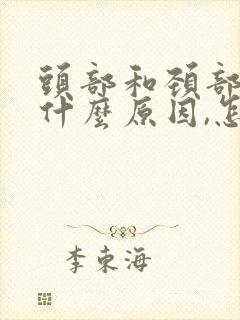 頭部和頚部
什麼原因,怎
李東海